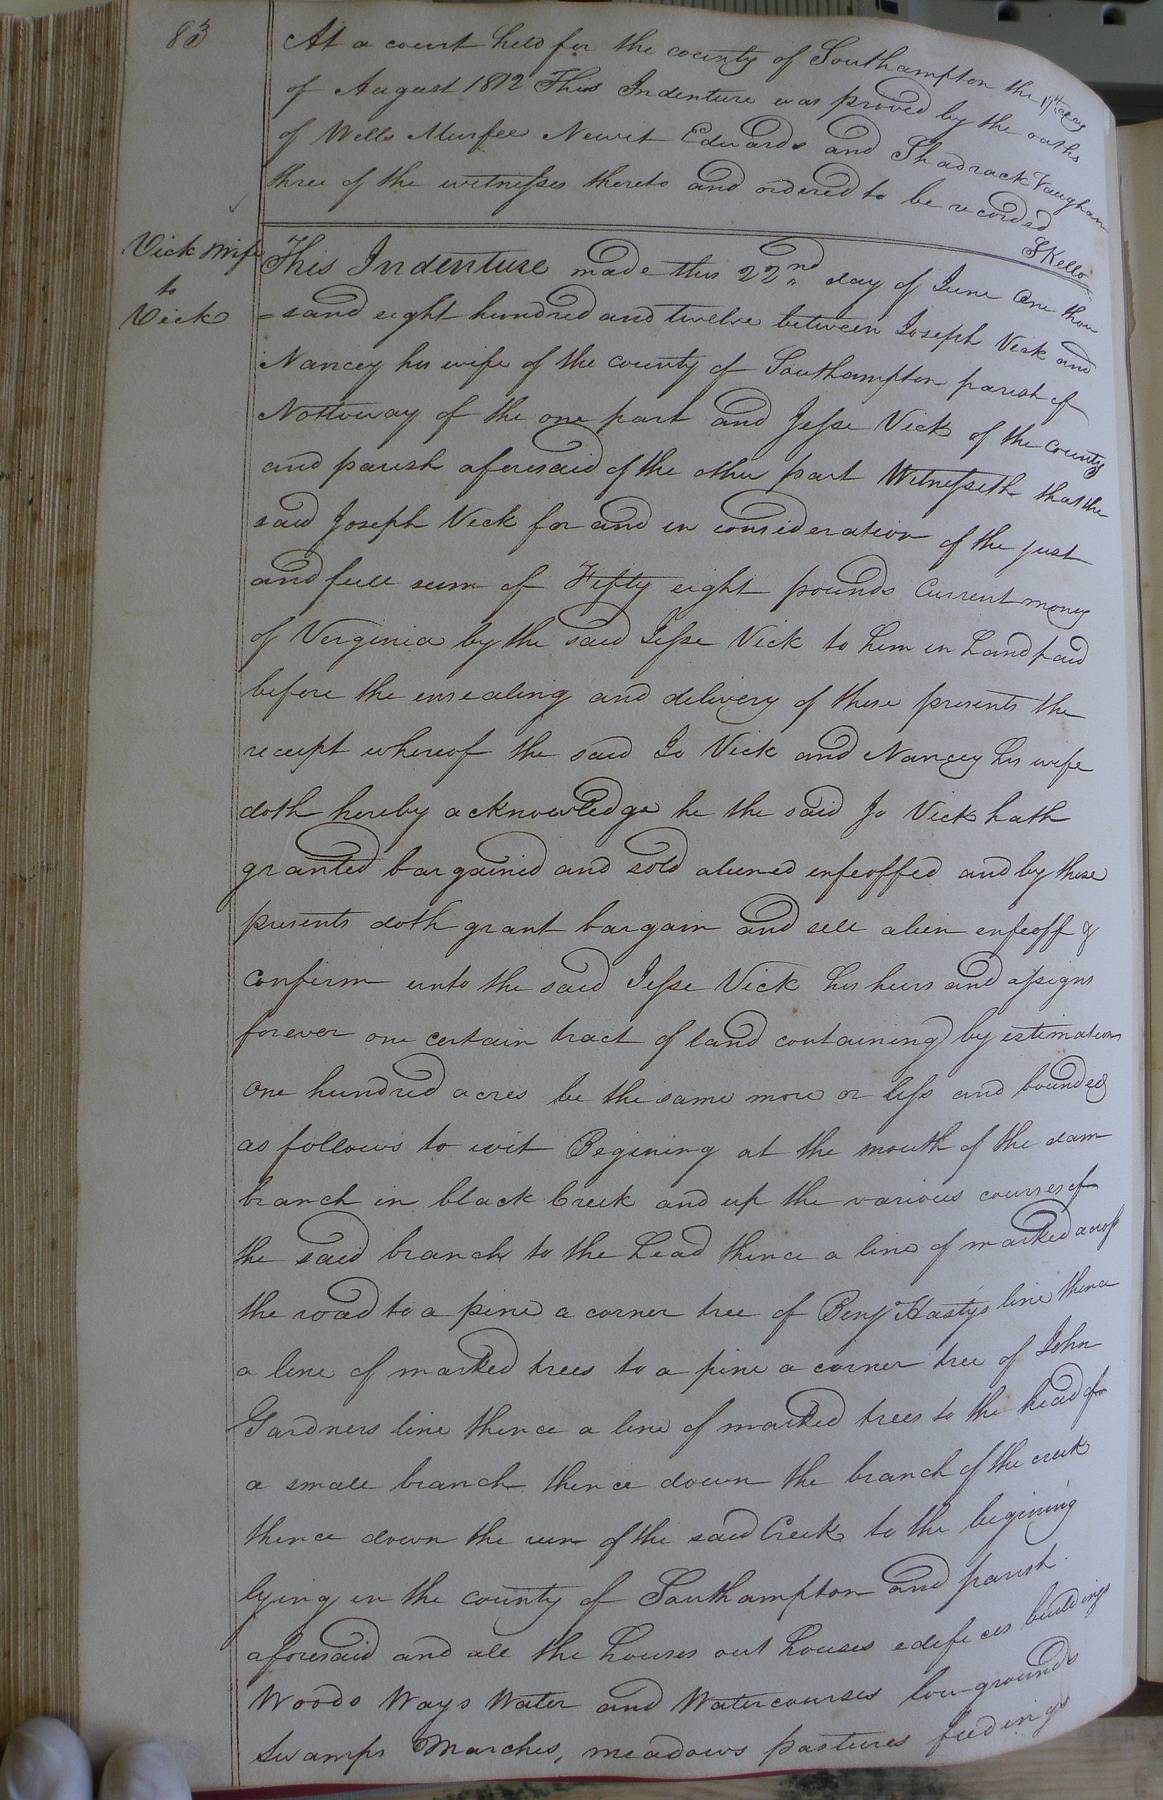 83
At a court held for the county of Southampton the 17th day
of August 1812 This Indenture was proved by the oaths
of Wells Murfee Newit Edwards and Shadrack Vaughan
three of the witnesses thereto and ordered to be recorded
SKello
Vick & wife
to
Vick
This Indenture made this 22nd day of June One thou
=sand eight hundred and twelve between Joseph Vick and
Nancey his wife of the county of Southampton parish of
Nottoway of the one part and Jesse Vick of the County
and parish aforesaid of the other part Witnesseth that the
said Joseph Vick for and in consideration of the just
and full sum of Fifty eight pounds Current money
of Verginia by the said Jesse Vick to him in hand paid
before the ensealing and delivery of these presents the
receipt whereof the said Jo Vick and Nancey his wife
doth hereby acknowledge he the said Jo Vick hath
granted bargained and sold aliened enfeoffed and by these
presents doth grant bargain and sell alien enfeoff &
Confirm unto the said Jesse Vick his heirs and assigns
forever one certain tract of land containing by estimation
One hundred acres be the same more or less and bounded
as follows to wit Begining at the mouth of the dam
branch in black Creek and up the various courses of
the said branch to the head thence a line of marked across
the road to a pine a corner tree of Benj Hastys line thence
a line of marked trees to a pine a corner tree of John
Gardners line thence a line of marked trees to the head of
a small branch thence down the branch of the creek
thence down the run of the said Creek to the begining
lying in the county of Southampton and parish
aforesaid and all the houses out houses edifices buildings
Woods Ways Water and Watercourses low-grounds
Swamps Marches, meadows pastures feedings